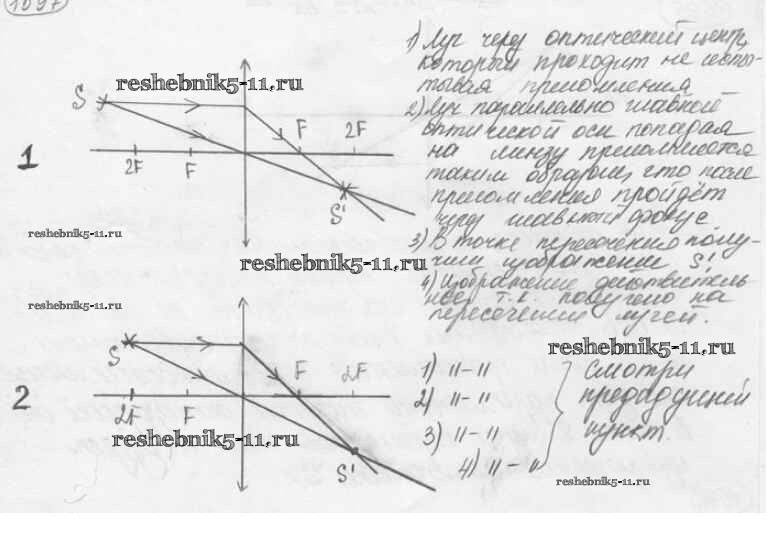 1097
1) Луч через оптический центр,
который проходит не испы-
тывая преломления
2) Луч параллельно главной
оптической оси попадая
на линзу преломляется
таким образом, что после
преломления пройдёт
через главный фокус.
3) В точке пересечения полу-
чим изображение S'.
4) Изображение действитель-
ное, т.к. получено на
пересечении лучей.
reshebnik5-11.ru
S
F
2F
1
2F
F
S'
reshebnik5-11.ru
reshebnik5-11.ru
reshebnik5-11.ru
S
F
2F
2
2F
F
reshebnik5-11.ru
S'
reshebnik5-11.ru
1) 11-11
2) 11-11
3) 11-11
4) 11-11
Смотри
предыдущий
пункт.
reshebnik5-11.ru